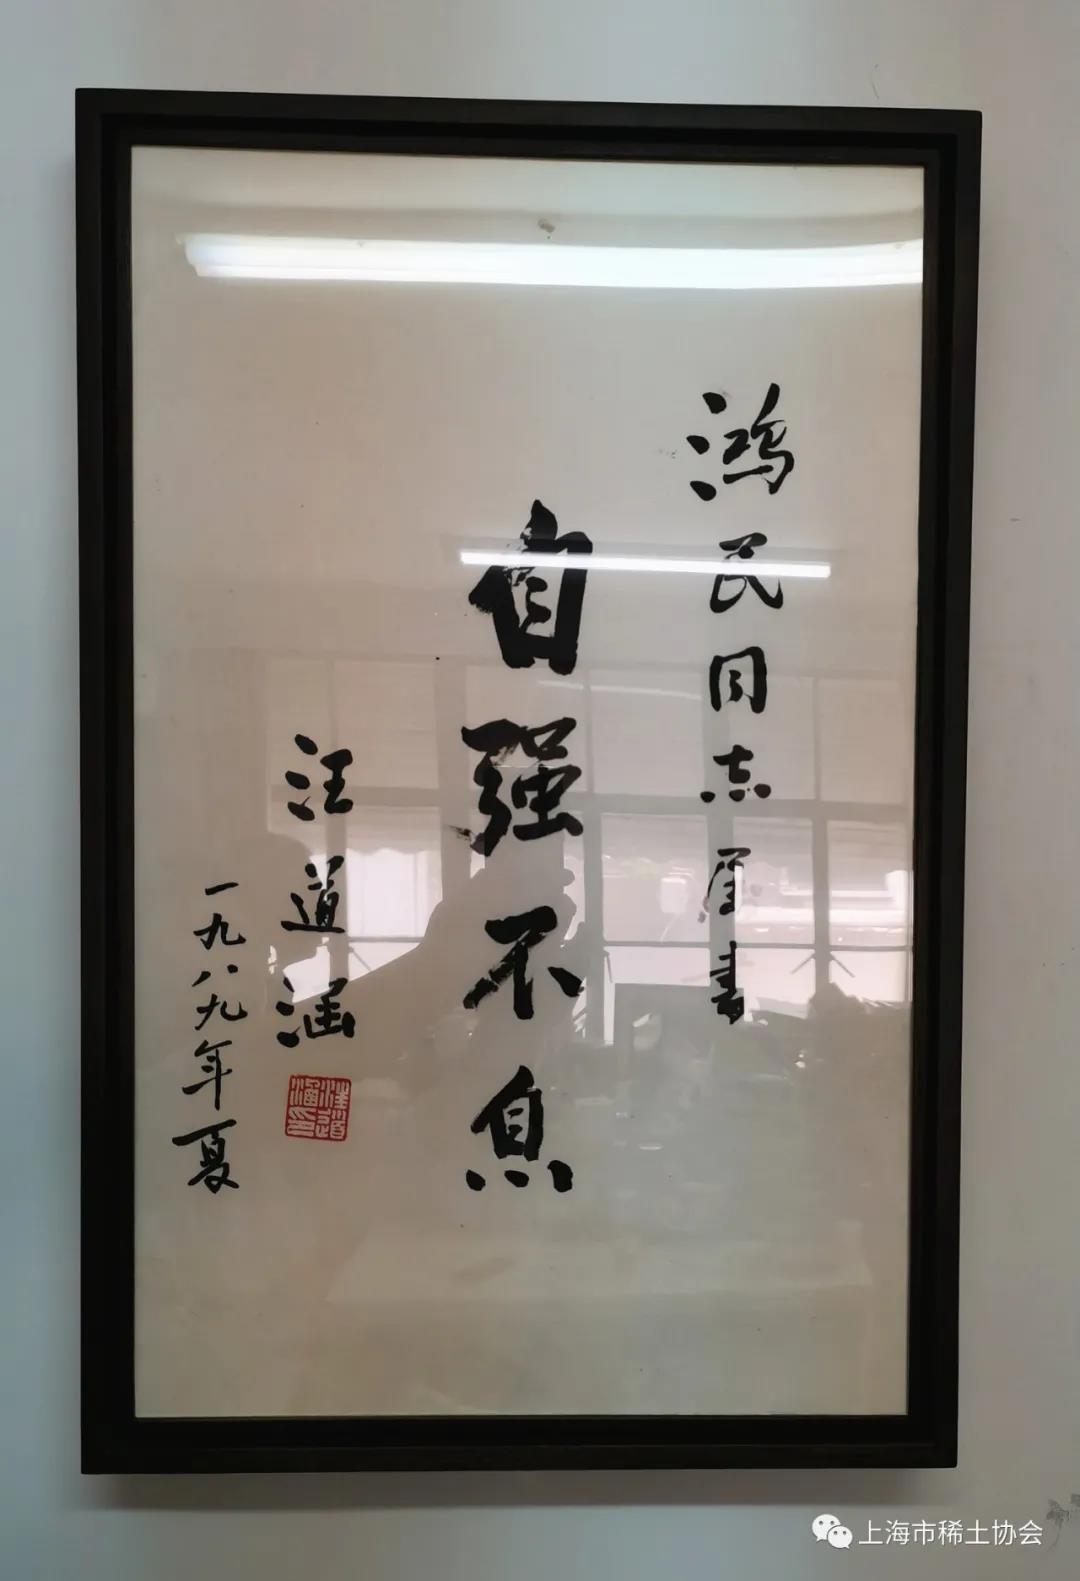 鸿民同志属书
自强不息
汪道涵
汪道涵印
一九八九年夏
上海市稀土协会